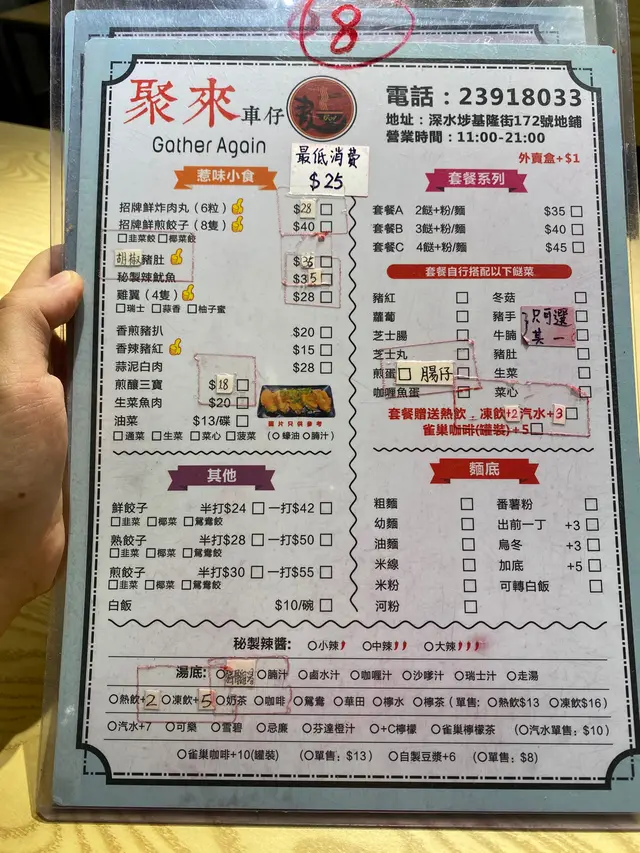 8
聚來車仔
Gather Again
電話：23918033
地址：深水埗基隆街172號地鋪
營業時間：11:00-21:00
外賣盒+$1
最低消費
$25
惹味小食
招牌鮮炸肉丸（6粒） $28 □
招牌鮮煎餃子（8隻） $40 □
□韭菜餃 □椰菜餃
胡椒豬肚 $35 □
秘製辣魷魚 $35 □
雞翼（4隻） $28 □
□瑞士 □蒜香 □柚子蜜
香煎豬扒 $20 □
香辣豬紅 $15 □
蒜泥白肉 $28 □
煎釀三寶 $18 □
生菜魚肉 $20 □
油菜 $13/碟 □
圖片只供參考
□通菜 □生菜 □菜心 □菠菜 （○蠔油 ○腩汁）
其他
鮮餃子 半打$24 □ 一打$42 □
□韭菜 □椰菜 □鴛鴦餃
熟餃子 半打$28 □ 一打$50 □
□韭菜 □椰菜 □鴛鴦餃
煎餃子 半打$30 □ 一打$55 □
□韭菜 □椰菜 □鴛鴦餃
白飯 $10/碗 □
套餐系列
套餐A 2餸+粉/麵 $35 □
套餐B 3餸+粉/麵 $40 □
套餐C 4餸+粉/麵 $45 □
套餐自行搭配以下餸菜
豬紅 □ 冬菇 □
蘿蔔 □ 豬手 □
芝士腸 □ 牛腩 只可選其一
芝士丸 □ 豬肚 □
煎蛋 □ 腸仔 □ 生菜 □
咖喱魚蛋 □ 菜心 □
套餐贈送熱飲，凍飲+2 汽水+3 □
雀巢咖啡(罐裝)+5 □
麵底
粗麵 □ 番薯粉 □
幼麵 □ 出前一丁 +3 □
油麵 □ 烏冬 +3 □
米線 □ 加底 +5 □
米粉 □ 可轉白飯 □
河粉 □
秘製辣醬： ○小辣 ○中辣 ○大辣
湯底： ○腩汁 ○鹵水汁 ○咖喱汁 ○沙嗲汁 ○瑞士汁 ○走湯
○熱飲+2 ○凍飲+5 ○奶茶 ○咖啡 ○鴛鴦 ○華田 ○檸水 ○檸茶（單售：○熱飲$13 ○凍飲$16）
○汽水+7 ○可樂 ○雪碧 ○忌廉 ○芬達橙汁 ○+C檸檬 ○雀巢檸檬茶 （○汽水單售：$10）
○雀巢咖啡+10(罐裝) （○單售：$13） ○自製豆漿+6 （○單售：$8）